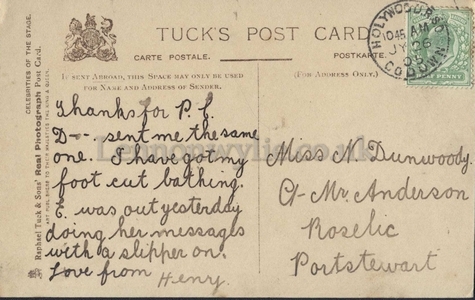 TUCK'S POST CARD
CARTE POSTALE. POSTKARTE.
IF SENT ABROAD, THIS SPACE MAY ONLY BE USED
FOR NAME AND ADDRESS OF SENDER.
(FOR ADDRESS ONLY.)
HOLYWOOD R.S.O
1045 AM
JY 26
CO DOWN
PENNY
CELEBRITIES OF THE STAGE.
Raphael Tuck & Sons' Real Photograph Post Card.
ART PUBLISHERS TO THEIR MAJESTIES THE KING & QUEEN.
Lennonwylie.co.uk
Thanks for P. C.
D-- sent me the same
one. I have got my
foot cut bathing.
E. was out yesterday
doing her messages
with a slipper on.
Love from Henry.
Miss N. Dunwoody.
C/- Mr. Anderson
Roselic
Portstewart